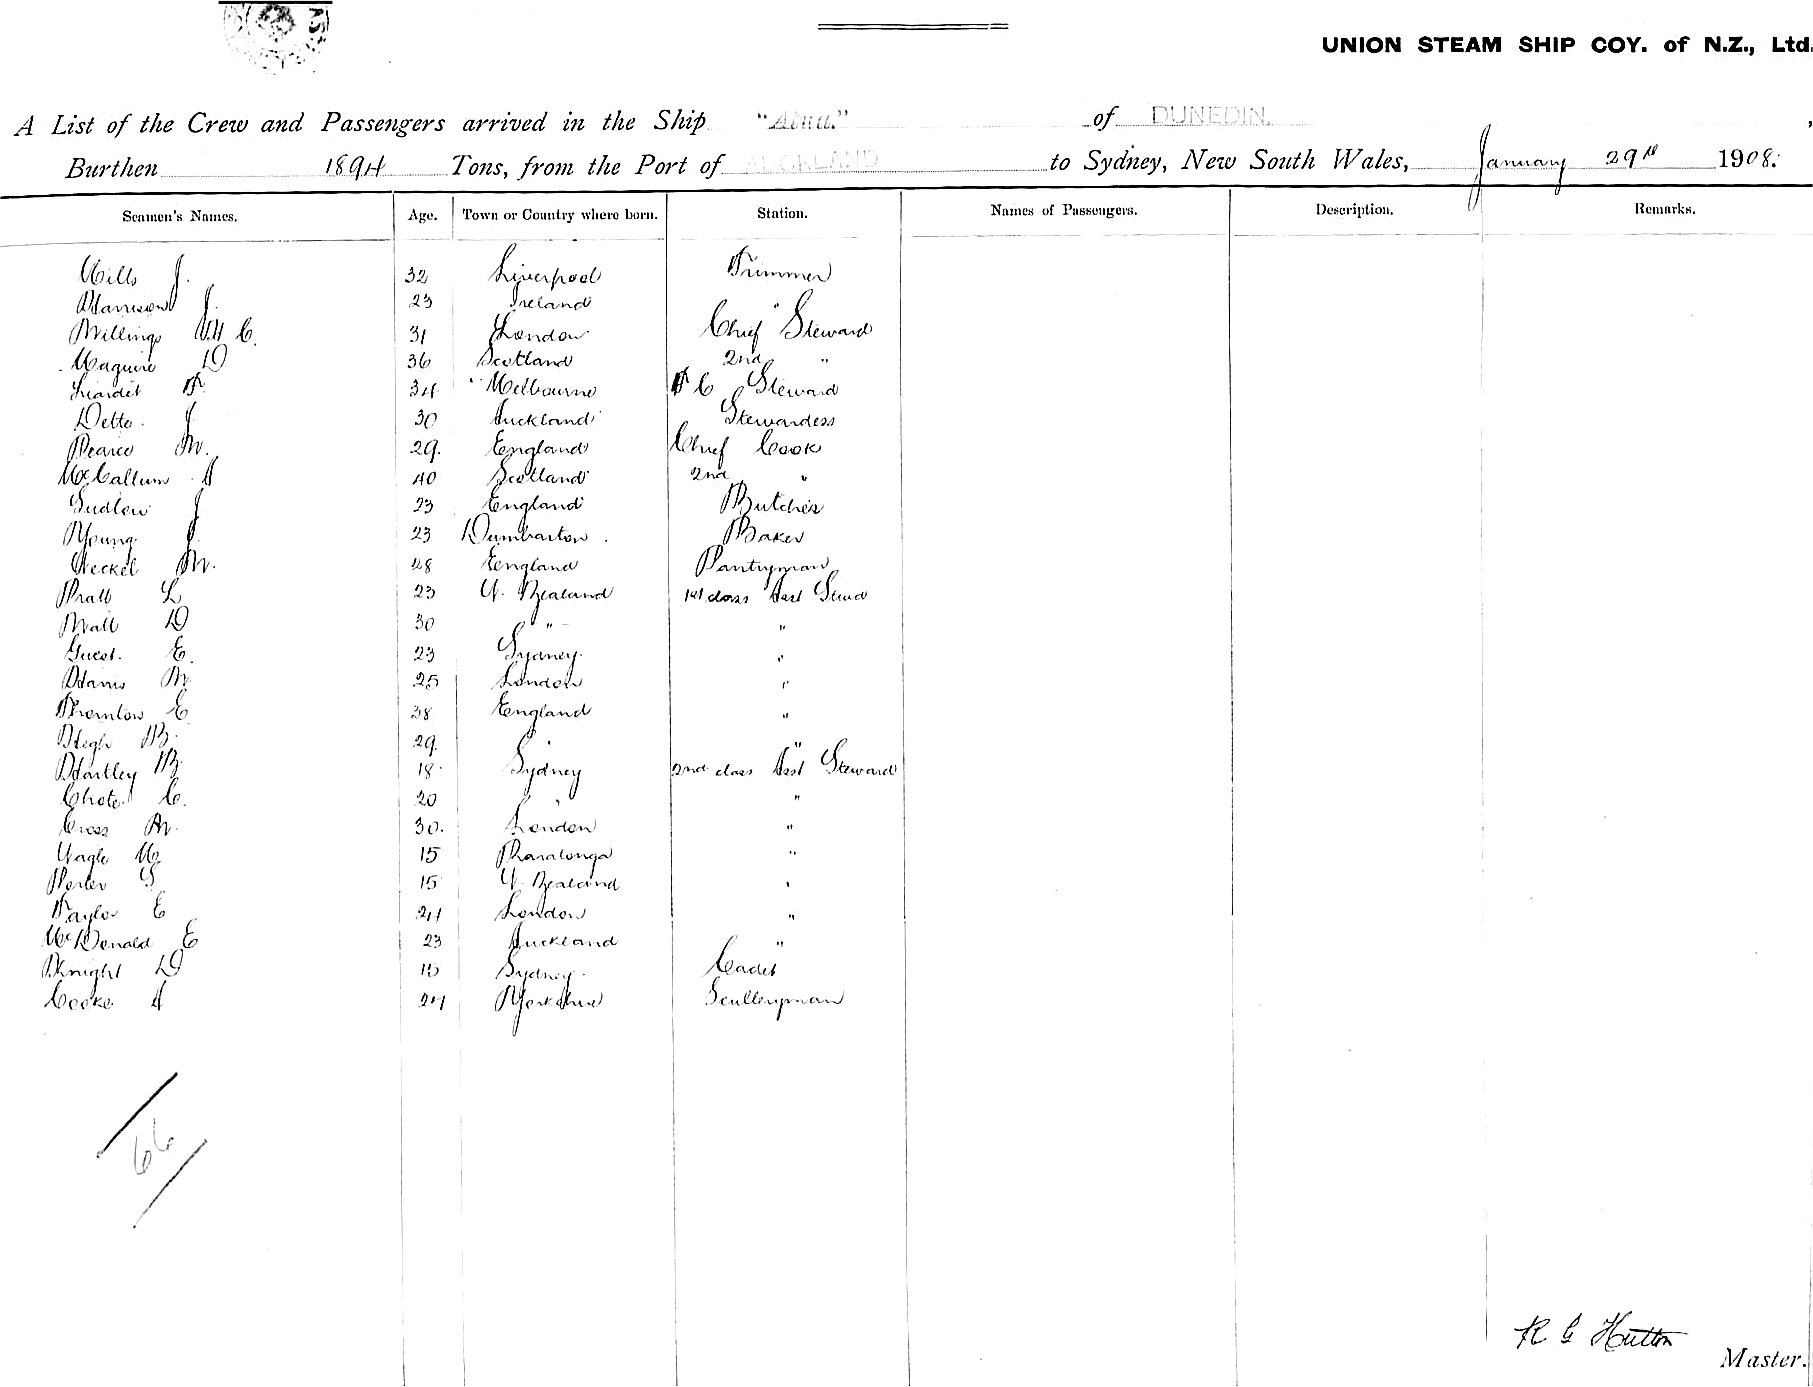 UNION STEAM SHIP COY. of N.Z., Ltd.
A List of the Crew and Passengers arrived in the Ship of DUNEDIN.,
Burthen 1894 Tons, from the Port of AUCKLAND to Sydney, New South Wales, January 29th 1908.
Seamen's Names. Age. Town or Country where born. Station. Names of Passengers. Description. Remarks.
Mills J. 32 Liverpool Trimmer
Harrison J. 23 Ireland "
Millings W. C. 31 London Chief Steward
Maguire D 36 Scotland 2nd "
Liardet F. 34 Melbourne F C Steward
J 30 Auckland Stewardess
Pearce W. 29. England Chief Cook
McCallum A 40 Scotland 2nd "
Ludlow J 23 England Butcher
Young J. 23 Dumbarton. Baker
W. 28 England Pantryman
Pratt L 23 N. Zealand 1st class Asst Stewd
Wall D 30 " "
Guest. E. 23 Sydney. "
Adams W. 25 London "
Thornton E. 38 England "
B. 29. " "
Hartley B. 18 Sydney 2nd class Asst Steward
C. 20 " "
Cross W. 30. London "
Nagle M. 15 Raratonga "
S 15 N. Zealand "
Taylor E 24 London "
McDonald E 23 Auckland "
Knight D 15 Sydney. Cadet
Cooke A 24 Yorkshire Sculleryman
66
R G Hutton
Master.